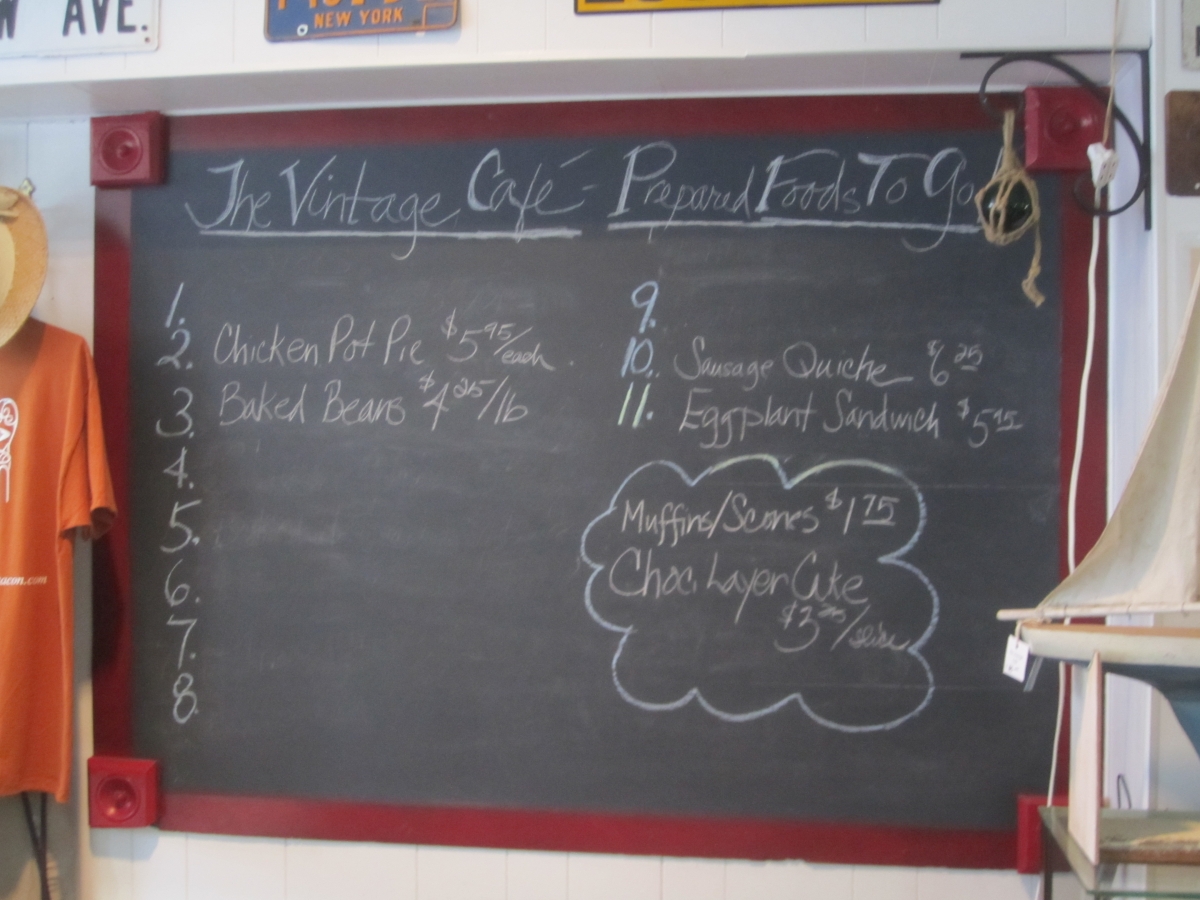 AVE.
NEW YORK
The Vintage Café - Prepared Foods To Go
1.
2. Chicken Pot Pie $5 95/each
3. Baked Beans $4 25/lb
4.
5.
6.
7.
8.
9.
10. Sausage Quiche $6 25
11. Eggplant Sandwich
Muffins/Scones $1 75
Choc. Layer Cake
/slice
acon.com